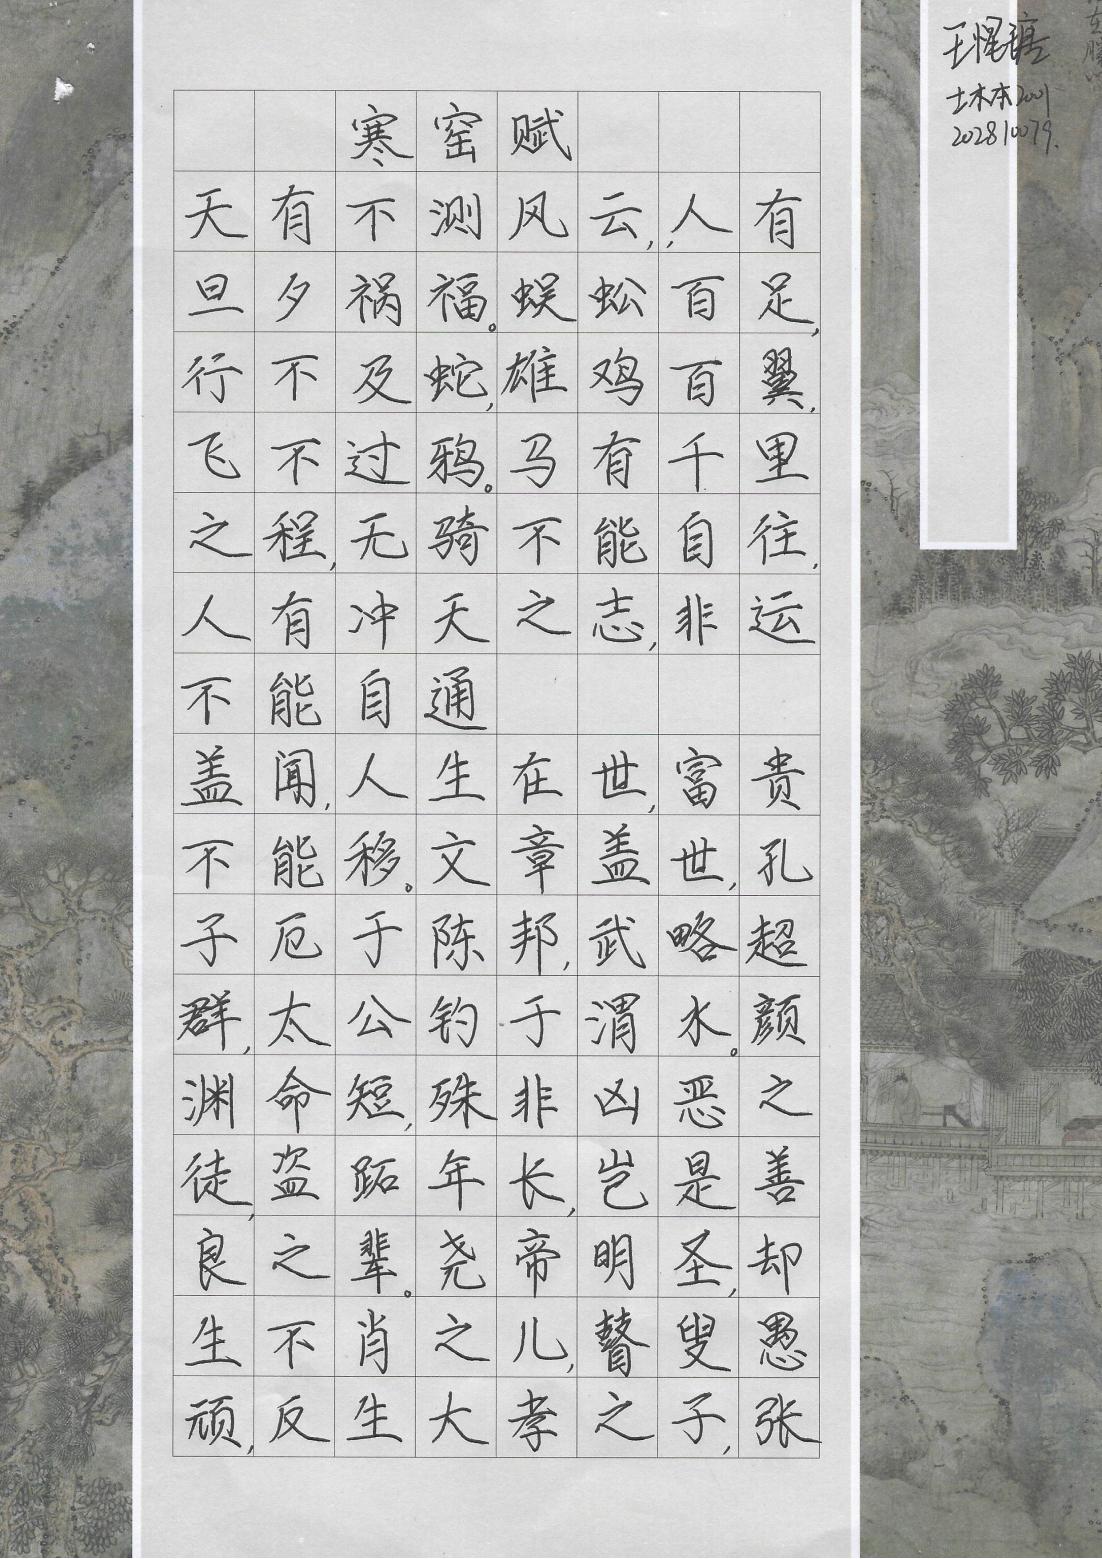 寒窑赋
天有不测风云,人有
旦夕祸福。蜈蚣百足,
行不及蛇,雄鸡百翼,
飞不过鸦。马有千里
之程,无骑不能自往,
人有冲天之志,非运
不能自通
盖闻,人生在世,富贵
不能移。文章盖世,孔
子厄于陈邦,武略超
群,太公钓于渭水。颜
渊命短,殊非凶恶之
徒,盗跖年长,岂是善
良之辈。尧帝明圣,却
生不肖之儿,瞽叟愚
顽,反生大孝之子,张
土木本2001
202810079.